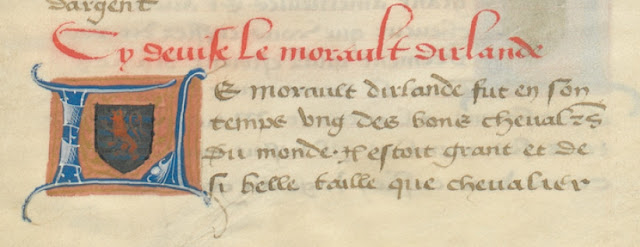 dargent
Cy devise le morault dirlande
Le morault dirlande fut en son
temps ung des bons chevalrs
du monde. Il estoit grant et de
si belle taille que chevalier